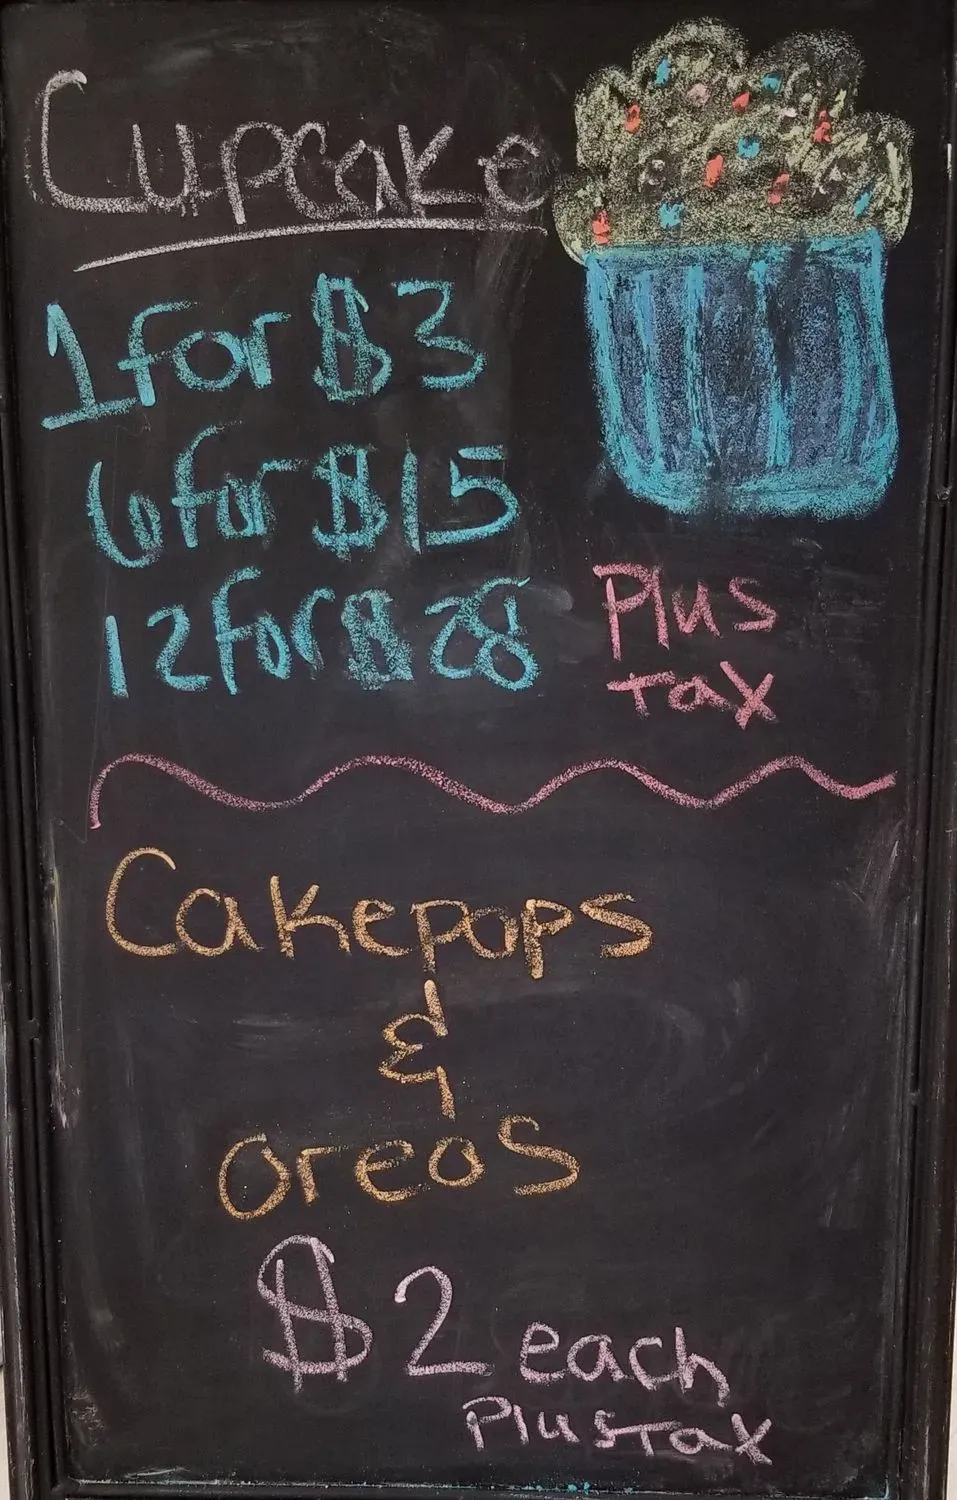 Cupcake
1 for $3
6 for $15
12 for $28
Plus
Tax
Cakepops
&
oreos
$2 each
Plus Tax